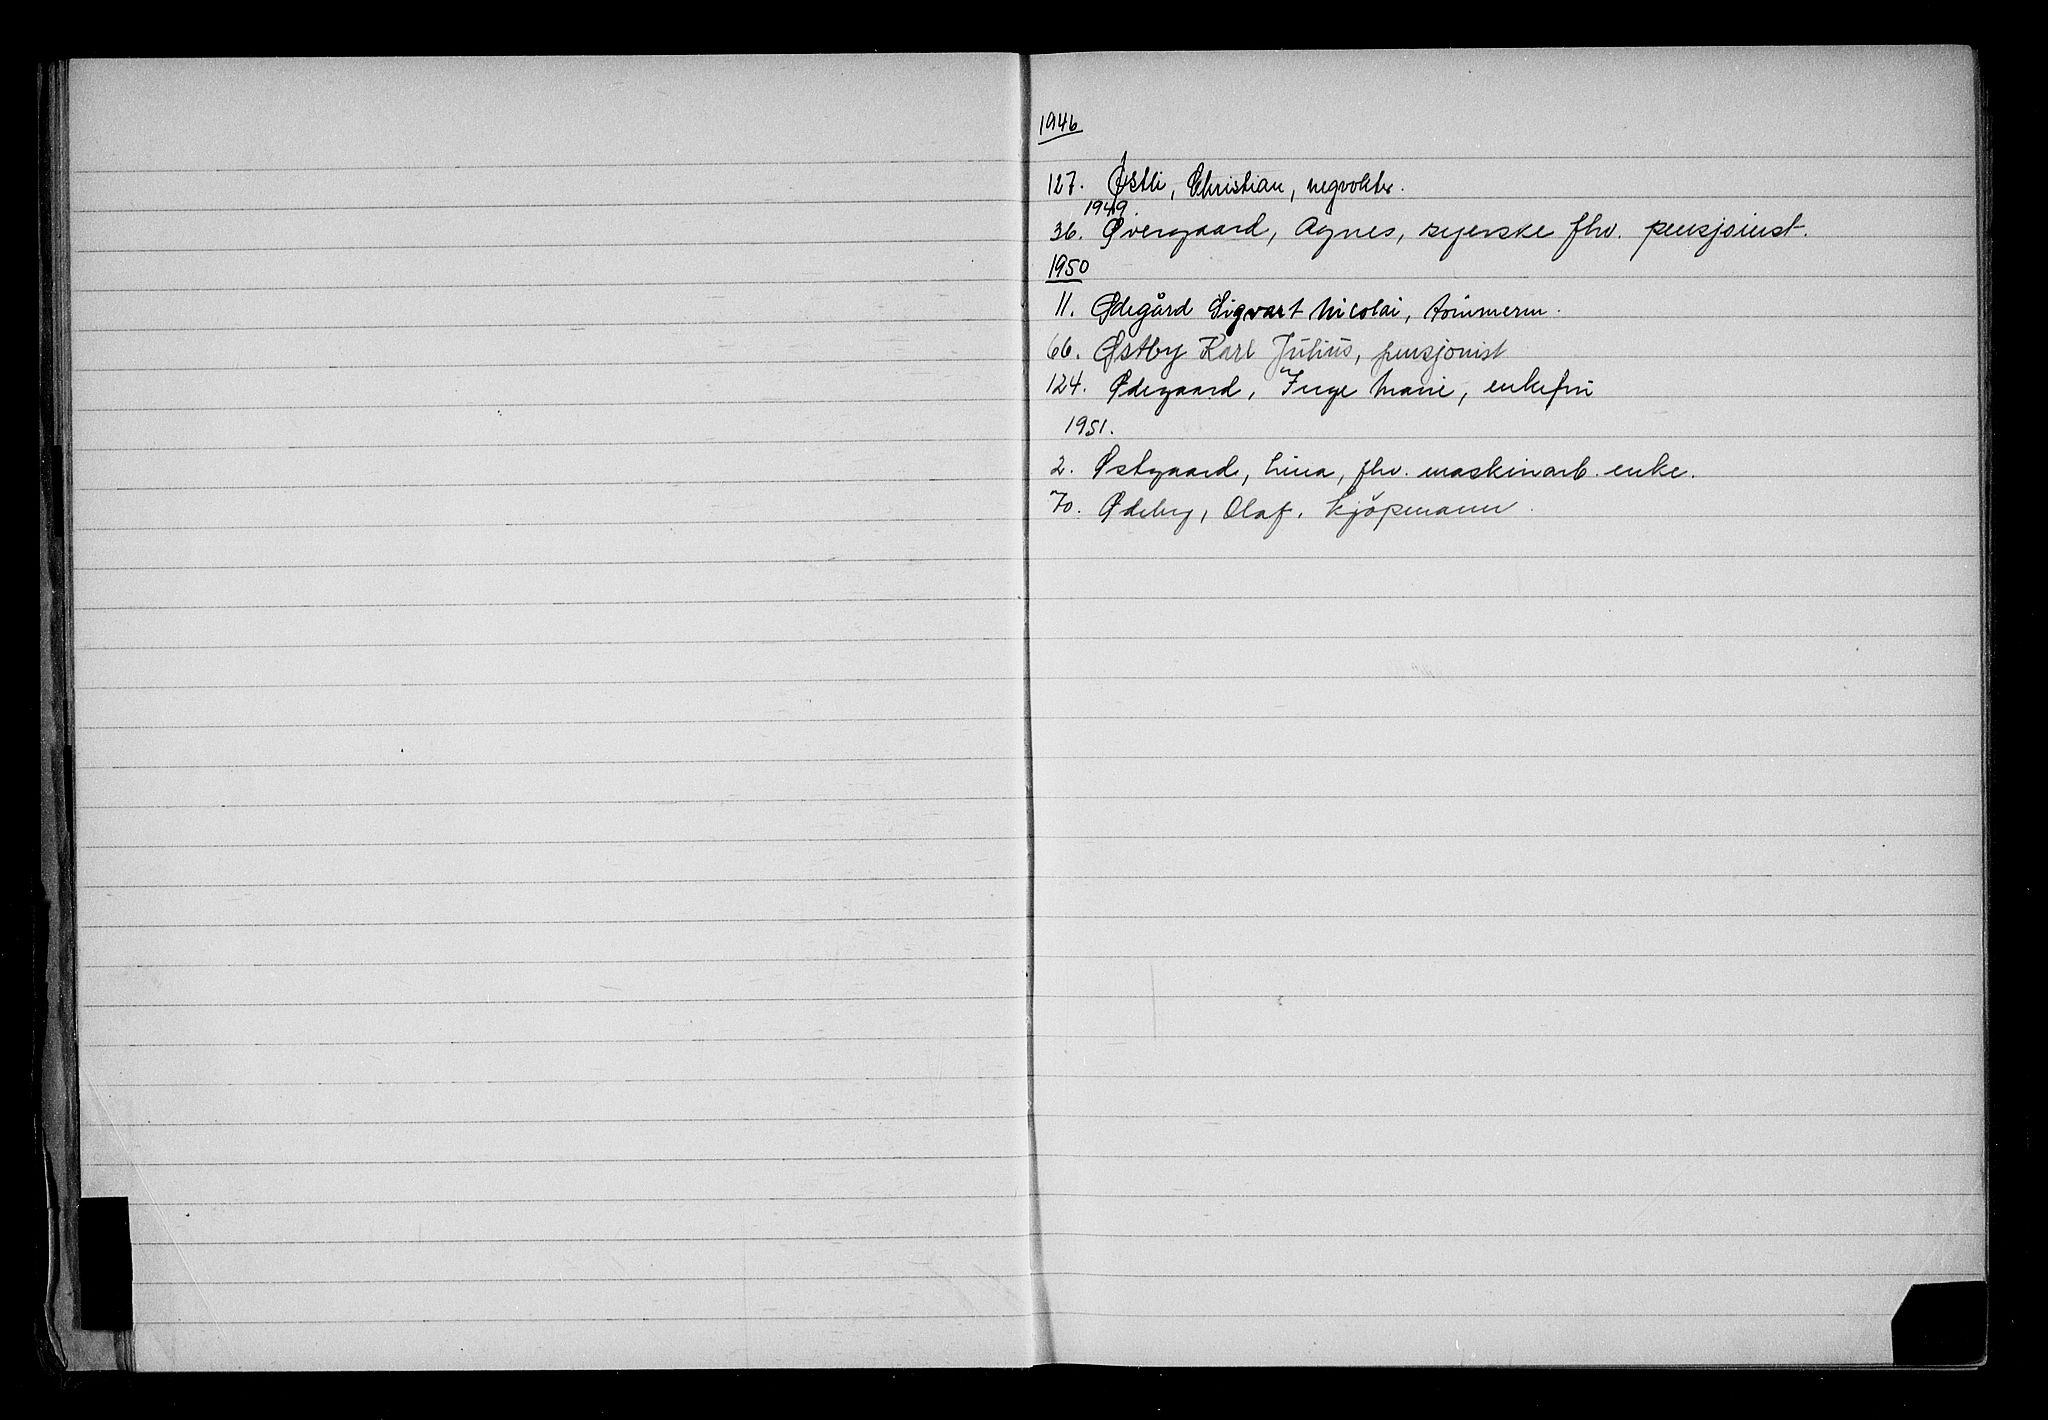 1946
127. Østli, Christian, vegvokter.
1949.
36. Øvergaard, Agnes, syerske fhv. pensjonist.
1950
11. Ødegård Sigvart Nicolai, tømmerm.
66. Østby Karl Julius, pensjonist
124. Ødegaard, Inge Marie, enkefru
1951.
2. Østgaard, Lina, fhv. maskinarb. enke.
70. Ødeby, Olaf, kjöpmann.